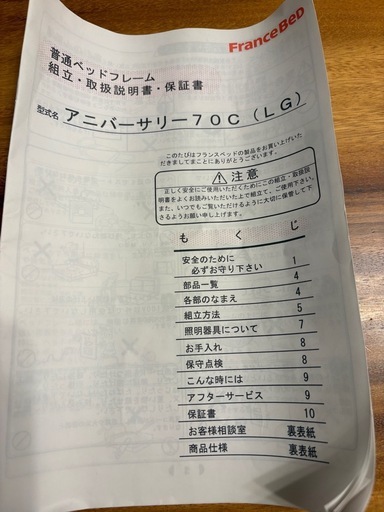 FranceBeD
普通ベッドフレーム
組立・取扱説明書・保証書
型式名 アニバーサリー70C(LG)
このたびはフランスベッドの製品をお買い上げいた
だきましてまことにありがとうございます。
注意
正しく安全にご使用いただくためにこの組立・取扱説
明書をよくお読みいただいた上で組立て、ご使用下さい。
また、いつでもご覧いただけるように大切に保管して下
さるようお願い申し上げます。
もくじ
安全のために
必ずお守り下さい 1
部品一覧 4
各部のなまえ 4
組立方法 5
照明器具について 7
お手入れ 8
保守点検 8
こんな時には 9
アフターサービス 9
保証書 10
お客様相談室 裏表紙
商品仕様 裏表紙